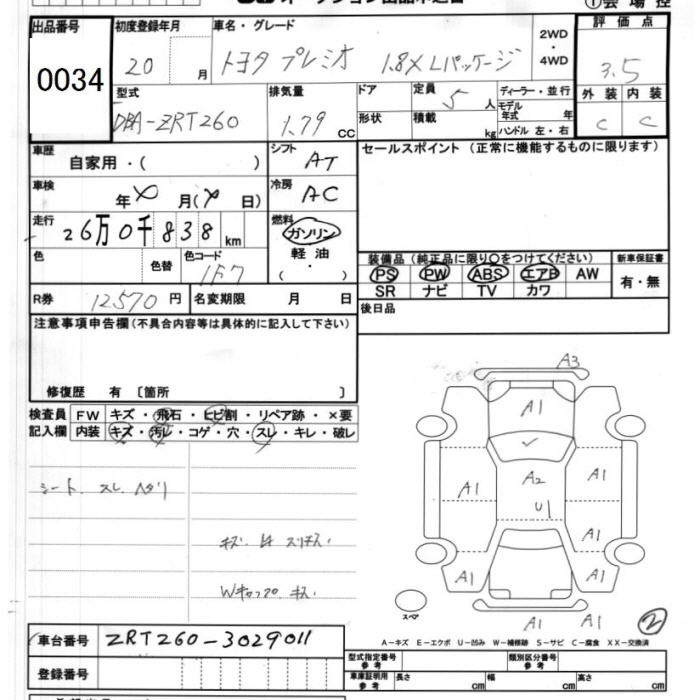 出品番号 初度登録年月 車名・グレード 2WD ・ 4WD 評価点
0034 20 月 トヨタ プレミオ 1.8X Lパッケージ 3.5
型式 排気量 ドア 定員 5 人 ディーラー・並行 外装 内装
DBA-ZRT260 1.79 cc 形状 積載 kg モデル年式 年 ハンドル 左・右 C C
車歴 自家用・( ) シフト AT セールスポイント (正常に機能するものに限ります)
車検 年 月( 日) 冷房 AC
走行 26万0千838 km 燃料 ガソリン
軽油
・
( )
色 色替 色コード 1F7
装備品 (純正品に限り○をつけてください) 新車保証書
PS PW ABS エアB AW 有・無
SR ナビ TV カワ
R券 12570 円 名変期限 月 日 後日品
注意事項申告欄(不具合内容等は具体的に記入して下さい)
修復歴 有 〔箇所 〕
検査員 FW キズ・飛石・ヒビ割・リペア跡・×要
記入欄 内装 キズ・汚レ・コゲ・穴・スレ・キレ・破レ
シート スレ ヘタリ
Wキャップ キズ
A3
A1
A2
U1
A1 A1
A1
A1 A1
A1 A1
スペア
2
A-キズ E-エクボ U-凹み W-補修跡 S-サビ C-腐食 XX-交換済
車台番号 ZRT260-3029011
登録番号
型式指定番号 参考 類別区分番号 参考
車庫証明用 参考 長さ cm 幅 cm 高さ cm